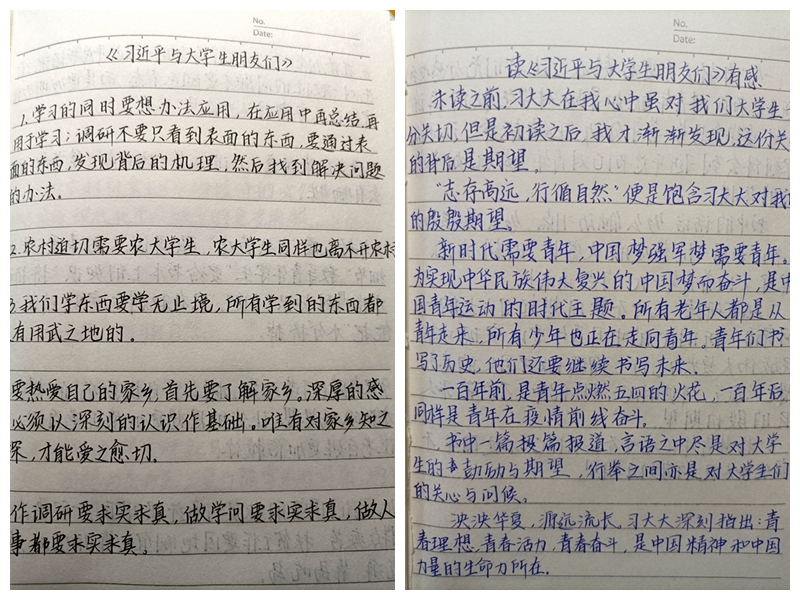 No.
Date:
《习近平与大学生朋友们》
1.学习的同时要想办法应用，在应用中再总结，再
用于学习；调研不要只看到表面的东西，要通过表
面的东西，发现背后的机理，然后找到解决问题
的办法。
2.农村迫切需要农大学生，农大学生同样也离不开农村
3.我们学东西要学无止境，所有学到的东西都
有用武之地的。
要热爱自己的家乡，首先要了解家乡。深厚的感
必须以深刻的认识作基础。唯有对家乡知之
深，才能爱之愈切。
作调研要求实求真，做学问要求实求真，做人
事都要求实求真。
No.
Date:
读《习近平与大学生朋友们》有感
未读之前，习大大在我心中虽对我们大学生
分关切，但是初读之后，我才渐渐发现，这份关
的背后是期望。
"志存高远，行循自然"便是饱含习大大对我
的殷殷期望。
新时代需要青年，中国梦强军梦需要青年。
为实现中华民族伟大复兴的中国梦而奋斗，是中
国青年运动的时代主题。所有老年人都是从
青年走来，所有少年也正在走向青年。青年们书
写了历史，他们还要继续书写未来。
一百年前，是青年点燃五四的火花，一百年后，
同样是青年在疫情前线奋斗。
书中一篇报篇报道，言语之中尽是对大学
生的鼓励与期望，行举之间亦是对大学生们
的关心与问候。
泱泱华夏，源远流长，习大大深刻指出：青
春理想，青春活力，青春奋斗，是中国精神和中国
力量的生命力所在。